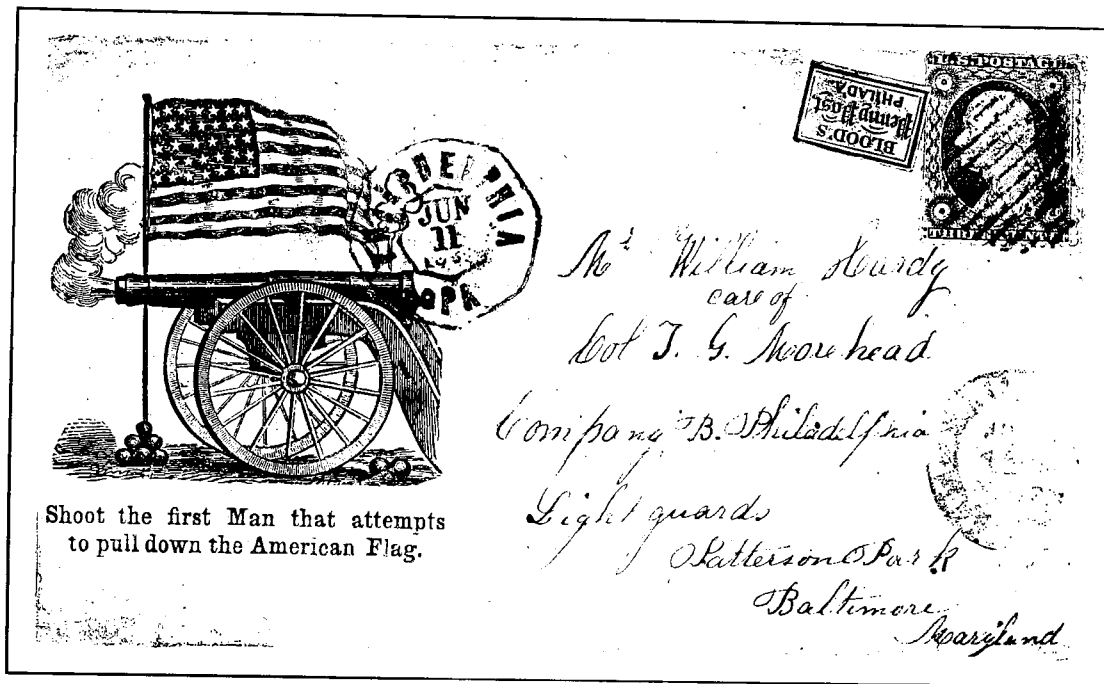 U.S. POSTAGE
BLOOD'S
Penny Post
PHILAD'A
PHILADELPHIA
JUN
11
PA
Mr William Hardy
care of
Col T. G. Moorehead
Company B. Philadelphia
Light guards
Patterson Park
Baltimore
Maryland
Shoot the first Man that attempts
to pull down the American Flag.